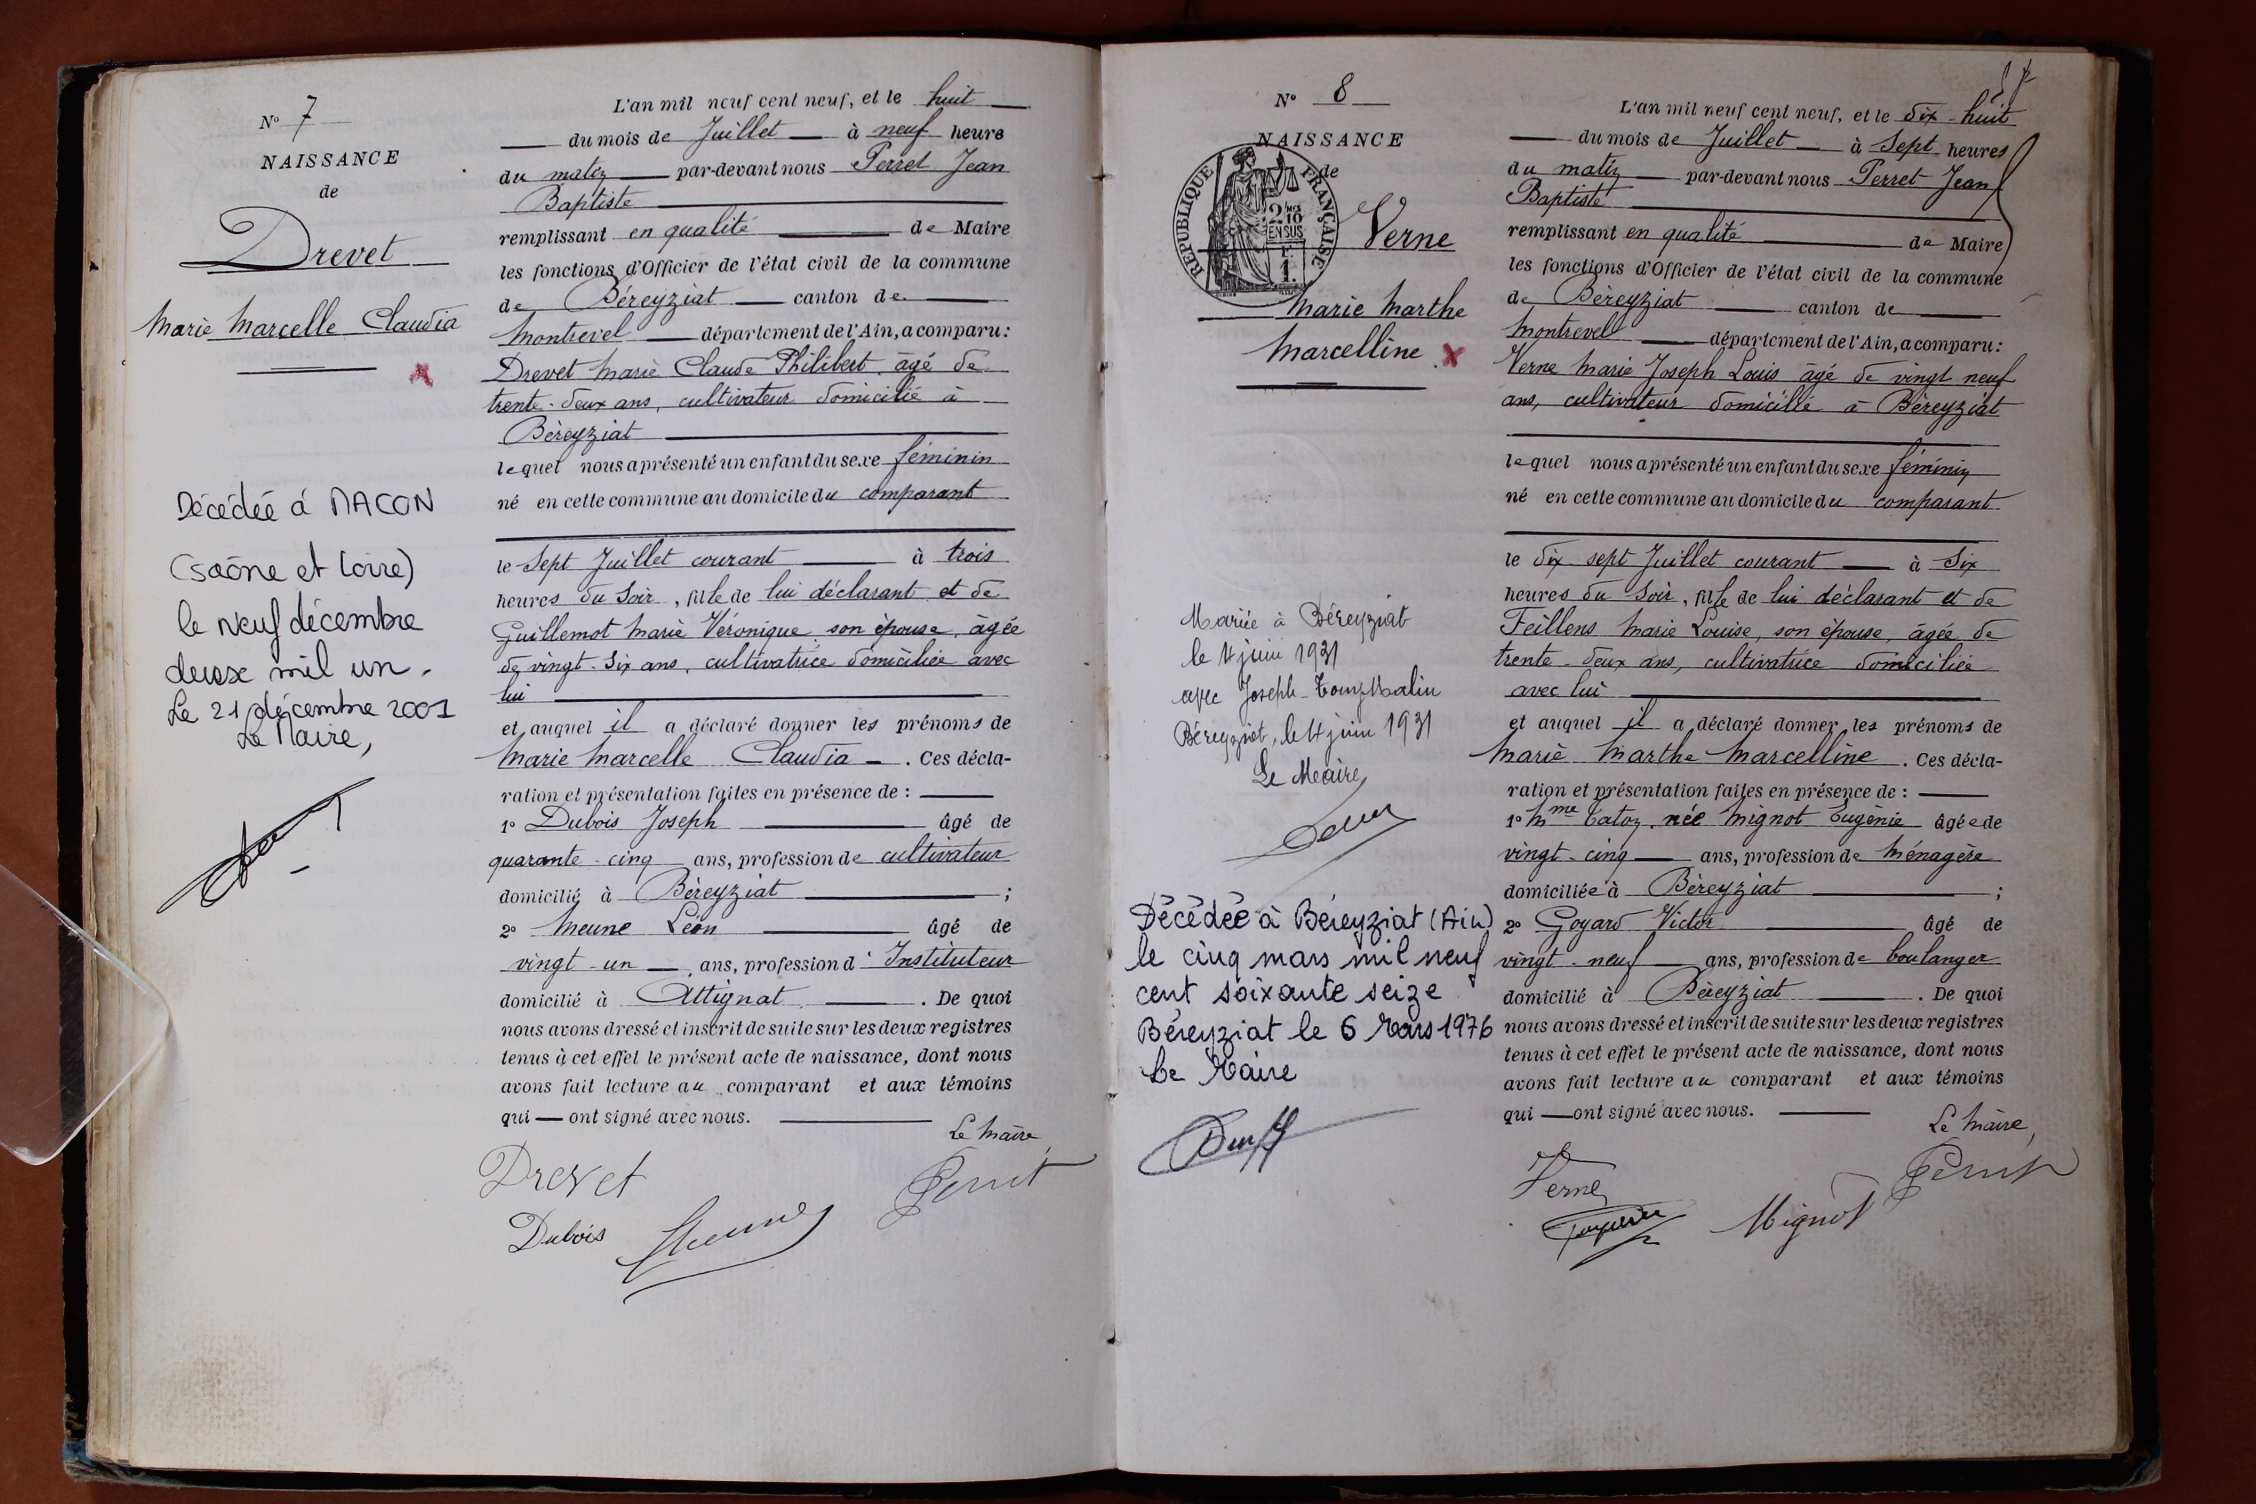 N° 7
NAISSANCE
de
Drevet
Marie Marcelle Claudia
Décédée á MACON
(saône et loire)
le neuf décembre
deux mil un.
Le 21 décembre 2001
Le Maire,
L'an mil neuf cent neuf, et le huit
du mois de Juillet à neuf heure
du matin par-devant nous Perret Jean
Baptiste
remplissant en qualité de Maire
les fonctions d'Officier de l'état civil de la commune
de Béreyziat canton de
Montrevel département de l'Ain, a comparu:
Drevet Marie Claude Philibert âgé de
trente-deux ans, cultivateur domicilié à
Béreyziat
lequel nous a présenté un enfant du sexe féminin
né en cette commune au domicile du comparant
le Sept Juillet courant à trois
heures du Soir, fille de lui déclarant et de
Guillemot Marie Véronique son épouse, âgée
de vingt-six ans, cultivatrice domiciliée avec
lui
et auquel il a déclaré donner les prénoms de
Marie Marcelle Claudia. Ces décla-
ration et présentation faites en présence de:
1° Dubois Joseph âgé de
quarante-cinq ans, profession de cultivateur
domicilié à Béreyziat;
2° Meune Léon âgé de
vingt-un ans, profession d'Instituteur
domicilié à Attignat. De quoi
nous avons dressé et inscrit de suite sur les deux registres
tenus à cet effet le présent acte de naissance, dont nous
avons fait lecture au comparant et aux témoins
qui ont signé avec nous.
Le Maire,
Drevet
Perret
Dubois
Meune
N° 8
NAISSANCE
de
REPUBLIQUE FRANÇAISE
2/10
EN SUS
Verne
Marie Marthe
Marcelline
Mariée à Béreyziat
le 4 juin 1931
avec Joseph
Béreyziat, le 4 juin 1931
Le Maire
Décédée à Béreyziat (Ain)
le cinq mars mil neuf
cent soixante seize
Béreyziat le 6 Mars 1976
Le Maire
L'an mil neuf cent neuf, et le dix-huit
du mois de Juillet à Sept heures
du matin par-devant nous Perret Jean
Baptiste
remplissant en qualité de Maire
les fonctions d'Officier de l'état civil de la commune
de Béreyziat canton de
Montrevel département de l'Ain, a comparu:
Verne Marie Joseph Louis âgé de vingt neuf
ans, cultivateur domicilié à Béreyziat
lequel nous a présenté un enfant du sexe féminin
né en cette commune au domicile du comparant
le dix sept Juillet courant à Six
heures du Soir, fille de lui déclarant et de
Feillens Marie Louise, son épouse, âgée de
trente-deux ans, cultivatrice domiciliée
avec lui
et auquel il a déclaré donner les prénoms de
Marie Marthe Marcelline. Ces décla-
ration et présentation faites en présence de:
1° Mme Catoz née Mignot Eugénie âgée de
vingt-cinq ans, profession de Ménagère
domiciliée à Béreyziat;
2° Goyard Victor âgé de
vingt-neuf ans, profession de boulanger
domicilié à Béreyziat. De quoi
nous avons dressé et inscrit de suite sur les deux registres
tenus à cet effet le présent acte de naissance, dont nous
avons fait lecture au comparant et aux témoins
qui ont signé avec nous.
Le Maire,
Verne
Perret
Mignot